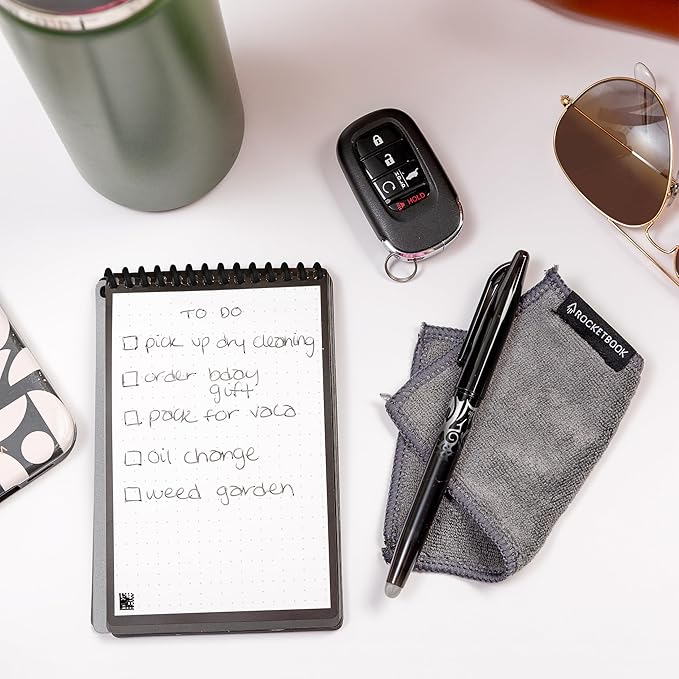 HOLD
TO DO
pick up dry cleaning
order bday
gift
pack for vaca
oil change
weed garden
ROCKETBOOK